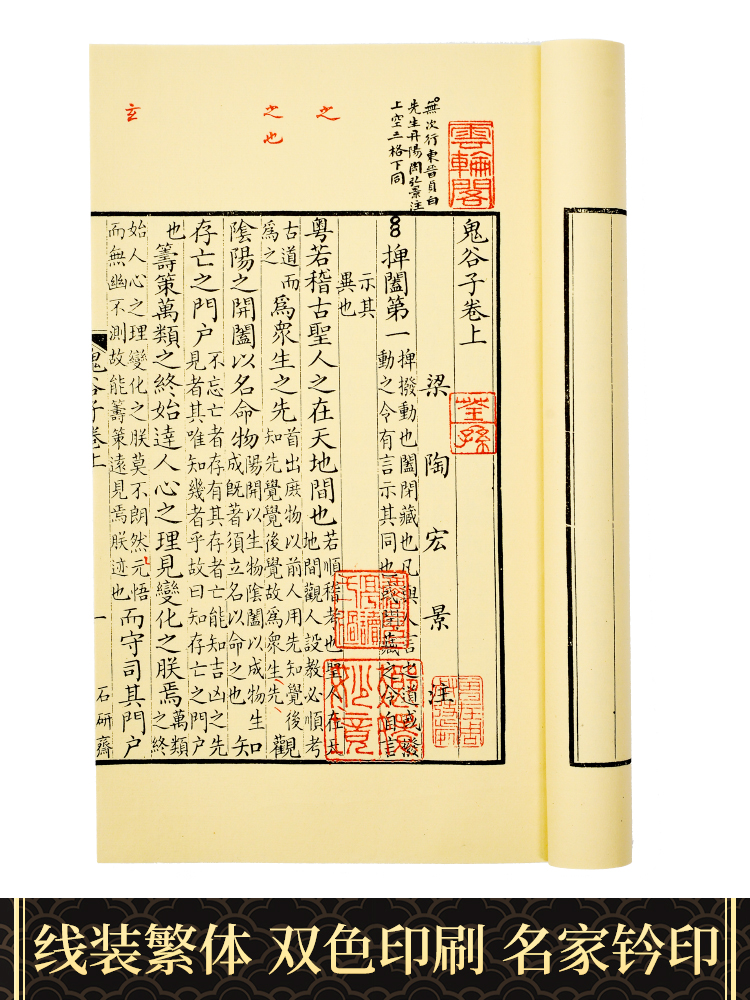 無次行東晉貞白
先生丹陽陶弘景注
上空三格下同
之
之也
玄
雲輪閣
鬼谷子卷上
荃孫
梁陶宏景注
捭闔第一
捭撥動也闔閉藏也凡與人言之道或撥
動之令有言示其同也或閉藏之令自言
示其
異也
粵若稽古聖人之在天地間也
若順稽考也聖人在天
地間觀人設教必順考
古道而
爲之
爲眾生之先
首出庶物以前人用先知覺後
知先覺覺後覺故爲眾生先
觀
陰陽之開闔以名命物
陽開以生物陰闔以成物生
成既著須立名以命之也
知
存亡之門戶
不忘亡者存有其存者亡能知吉凶之先
見者其唯知幾者乎故曰知存亡之門戶
也
籌策萬類之終始達人心之理見變化之朕焉
萬類
之終
始人心之理變化之朕莫不朗然元悟
而無幽不測故能籌策遠見焉朕迹也
而守司其門戶
鬼谷子卷上
一
石研齋
线装繁体 双色印刷 名家钤印